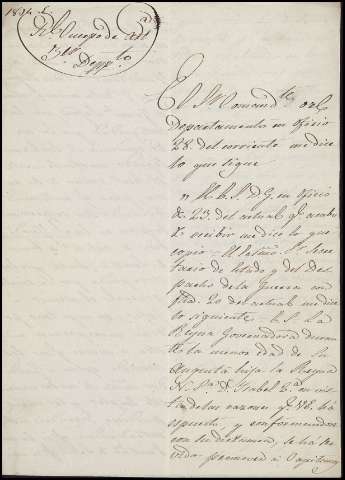 Rl. Cuerpo de Art.
Depto.
El Sr. Comandte. del
Departamento en oficio
28 del corriente me dice
lo que sigue
" El E. S. D. G. en oficio
de 23 del actual qe. acabo
de recibir me dice lo que
copio = El Exmo. Sr. Secre
tario de Estado y del Des
pacho de la Guerra con
fha. 20 del actual me dice
lo siguiente = E. S. La
Reyna Governadora duran
te la menor edad de Su
Augusta hija la Reyna
N. Sa. Da. Isabel 2a. en vis
ta de las razones qe. VE. ha
espuesto, y conformandose
con su dictamen, se há ser
vido promover á Capitanes